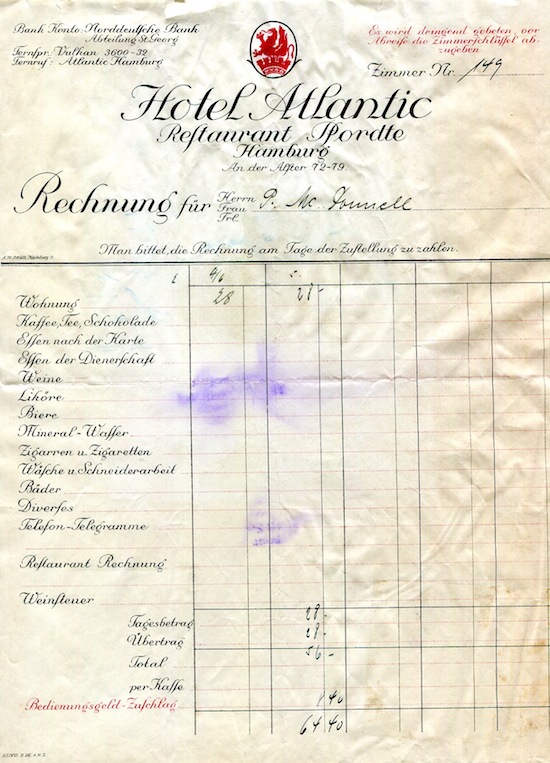 Bank Konto: Norddeutsche Bank
Abteilung St. Georg
Fernspr.: Vulkan 3600-32
Fernruf: Atlantic Hamburg
Es wird dringend gebeten, vor
Abreise die Zimmerschlüssel ab-
zugeben
Zimmer Nr. 149
Hotel Atlantic
Restaurant Pfordte
Hamburg
An der Alster 72-79.
Rechnung für
Herrn
Frau
Frl.
P. Mc. Donnell
Man bittet, die Rechnung am Tage der Zustellung zu zahlen.
Wohnung 28 28-
Kaffee, Tee, Schokolade
Essen nach der Karte
Essen der Dienerschaft
Weine
Liköre
Biere
Mineral-Wasser
Zigarren u. Zigaretten
Wäsche u. Schneiderarbeit
Bäder
Diverses
Telefon-Telegramme
Restaurant Rechnung
Weinsteuer
Tagesbetrag 28-
Übertrag 28-
Total 56-
per Kasse
Bedienungsgeld-Zuschlag 8 40
64 40